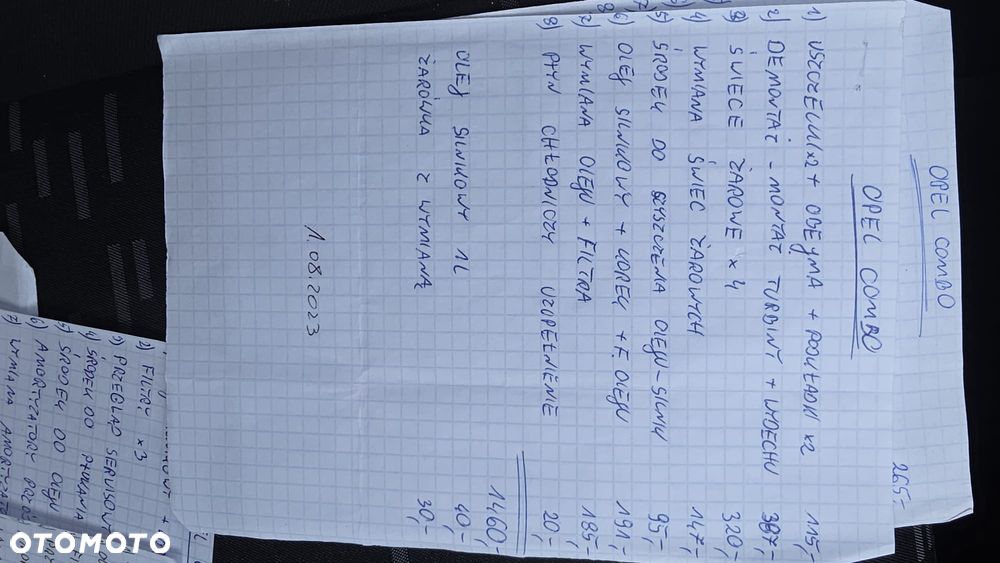 OPEL COMBO
265,-
OPEL COMBO
1) USZCZELKI x2 + OBEJMA + PODKŁADKI x2 115,-
2) DEMONTAŻ - MONTAŻ TURBINY + WYDECHU 387,-
3) ŚWIECE ŻAROWE x 4 320,-
4) WYMIANA ŚWIEC ŻAROWYCH 147,-
5) ŚRODEK DO CZYSZCZENIA OLEJU-SILNIK 95,-
6) OLEJ SILNIKOWY + KOREK + F. OLEJU 191,-
7) WYMIANA OLEJU + FILTRA 185,-
8) PŁYN CHŁODNICZY UZUPEŁNIENIE 20,-
1460,-
OLEJ SILNIKOWY 1L 40,-
ŻARÓWKA Z WYMIANĄ 30,-
1.08.2023
2) FILTRY x3
3) PRZEGLĄD SERWISOWY
4) ŚRODEK DO PŁUKANIA
5) ŚRODEK DO OLEJU
6) AMORTYZATORY
7) WYMIANA
OTOMOTO